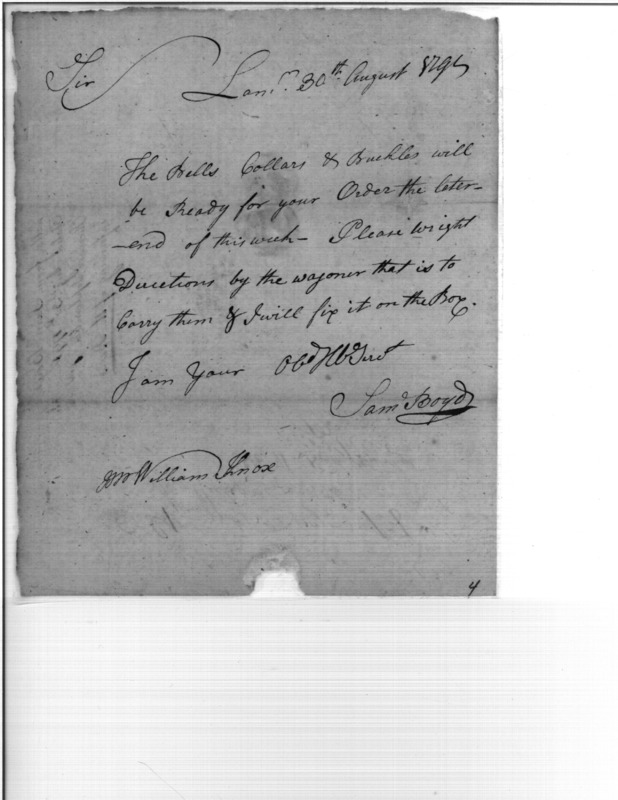 Sir
Lanr. 30th August 179
The Bells Collars & Buckles will
be Ready for your Order the later-
-end of this week - Please Wright
Directions by the wagoner that is to
Carry them & I will fix it on the Box.
I am Your Obd Hble Servt
Saml Boyd
Mr William Knox
4